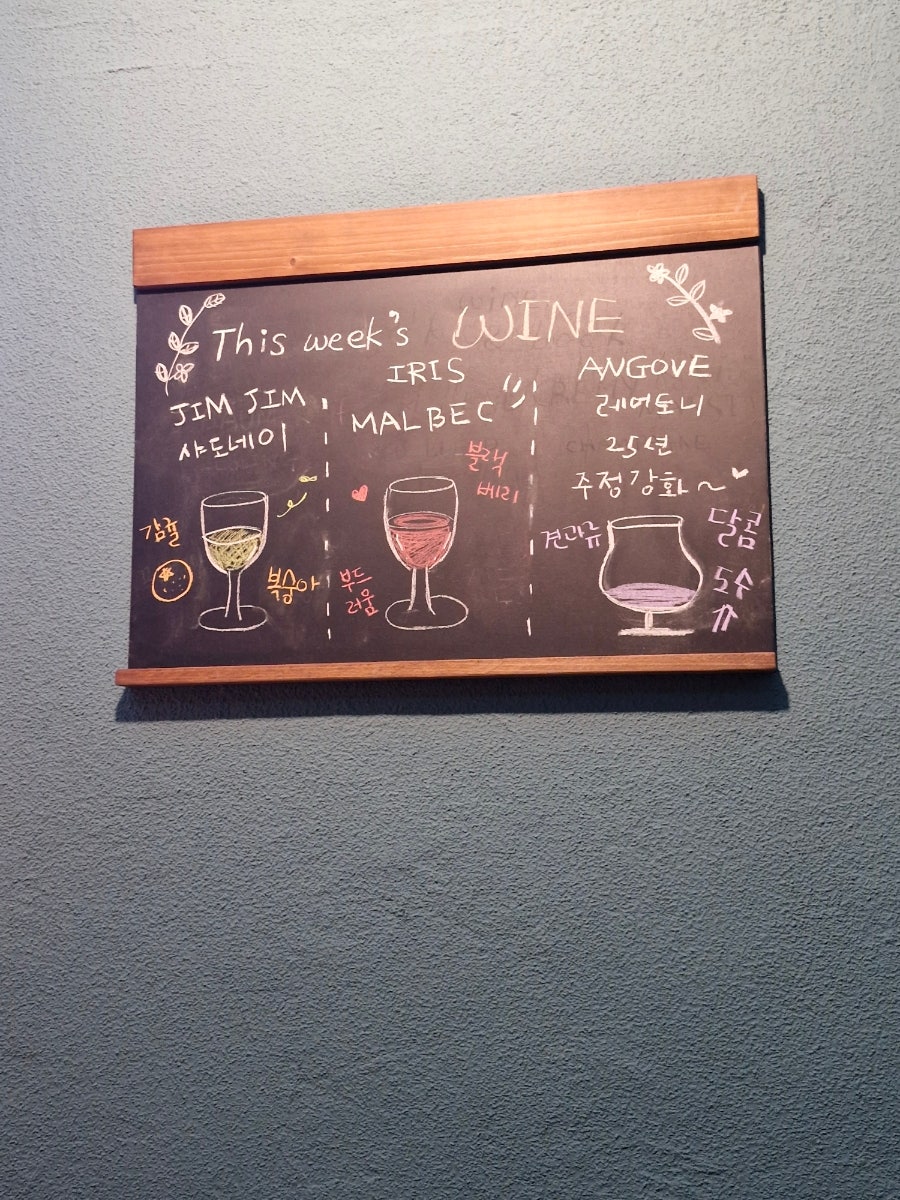 This week's WINE
JIM JIM
샤도네이
감귤
복숭아
IRIS
MALBEC
블랙
베리
부드
러움
ANGOVE
레어토니
25년
주정강화~
견과류
달콤
도수
⇈